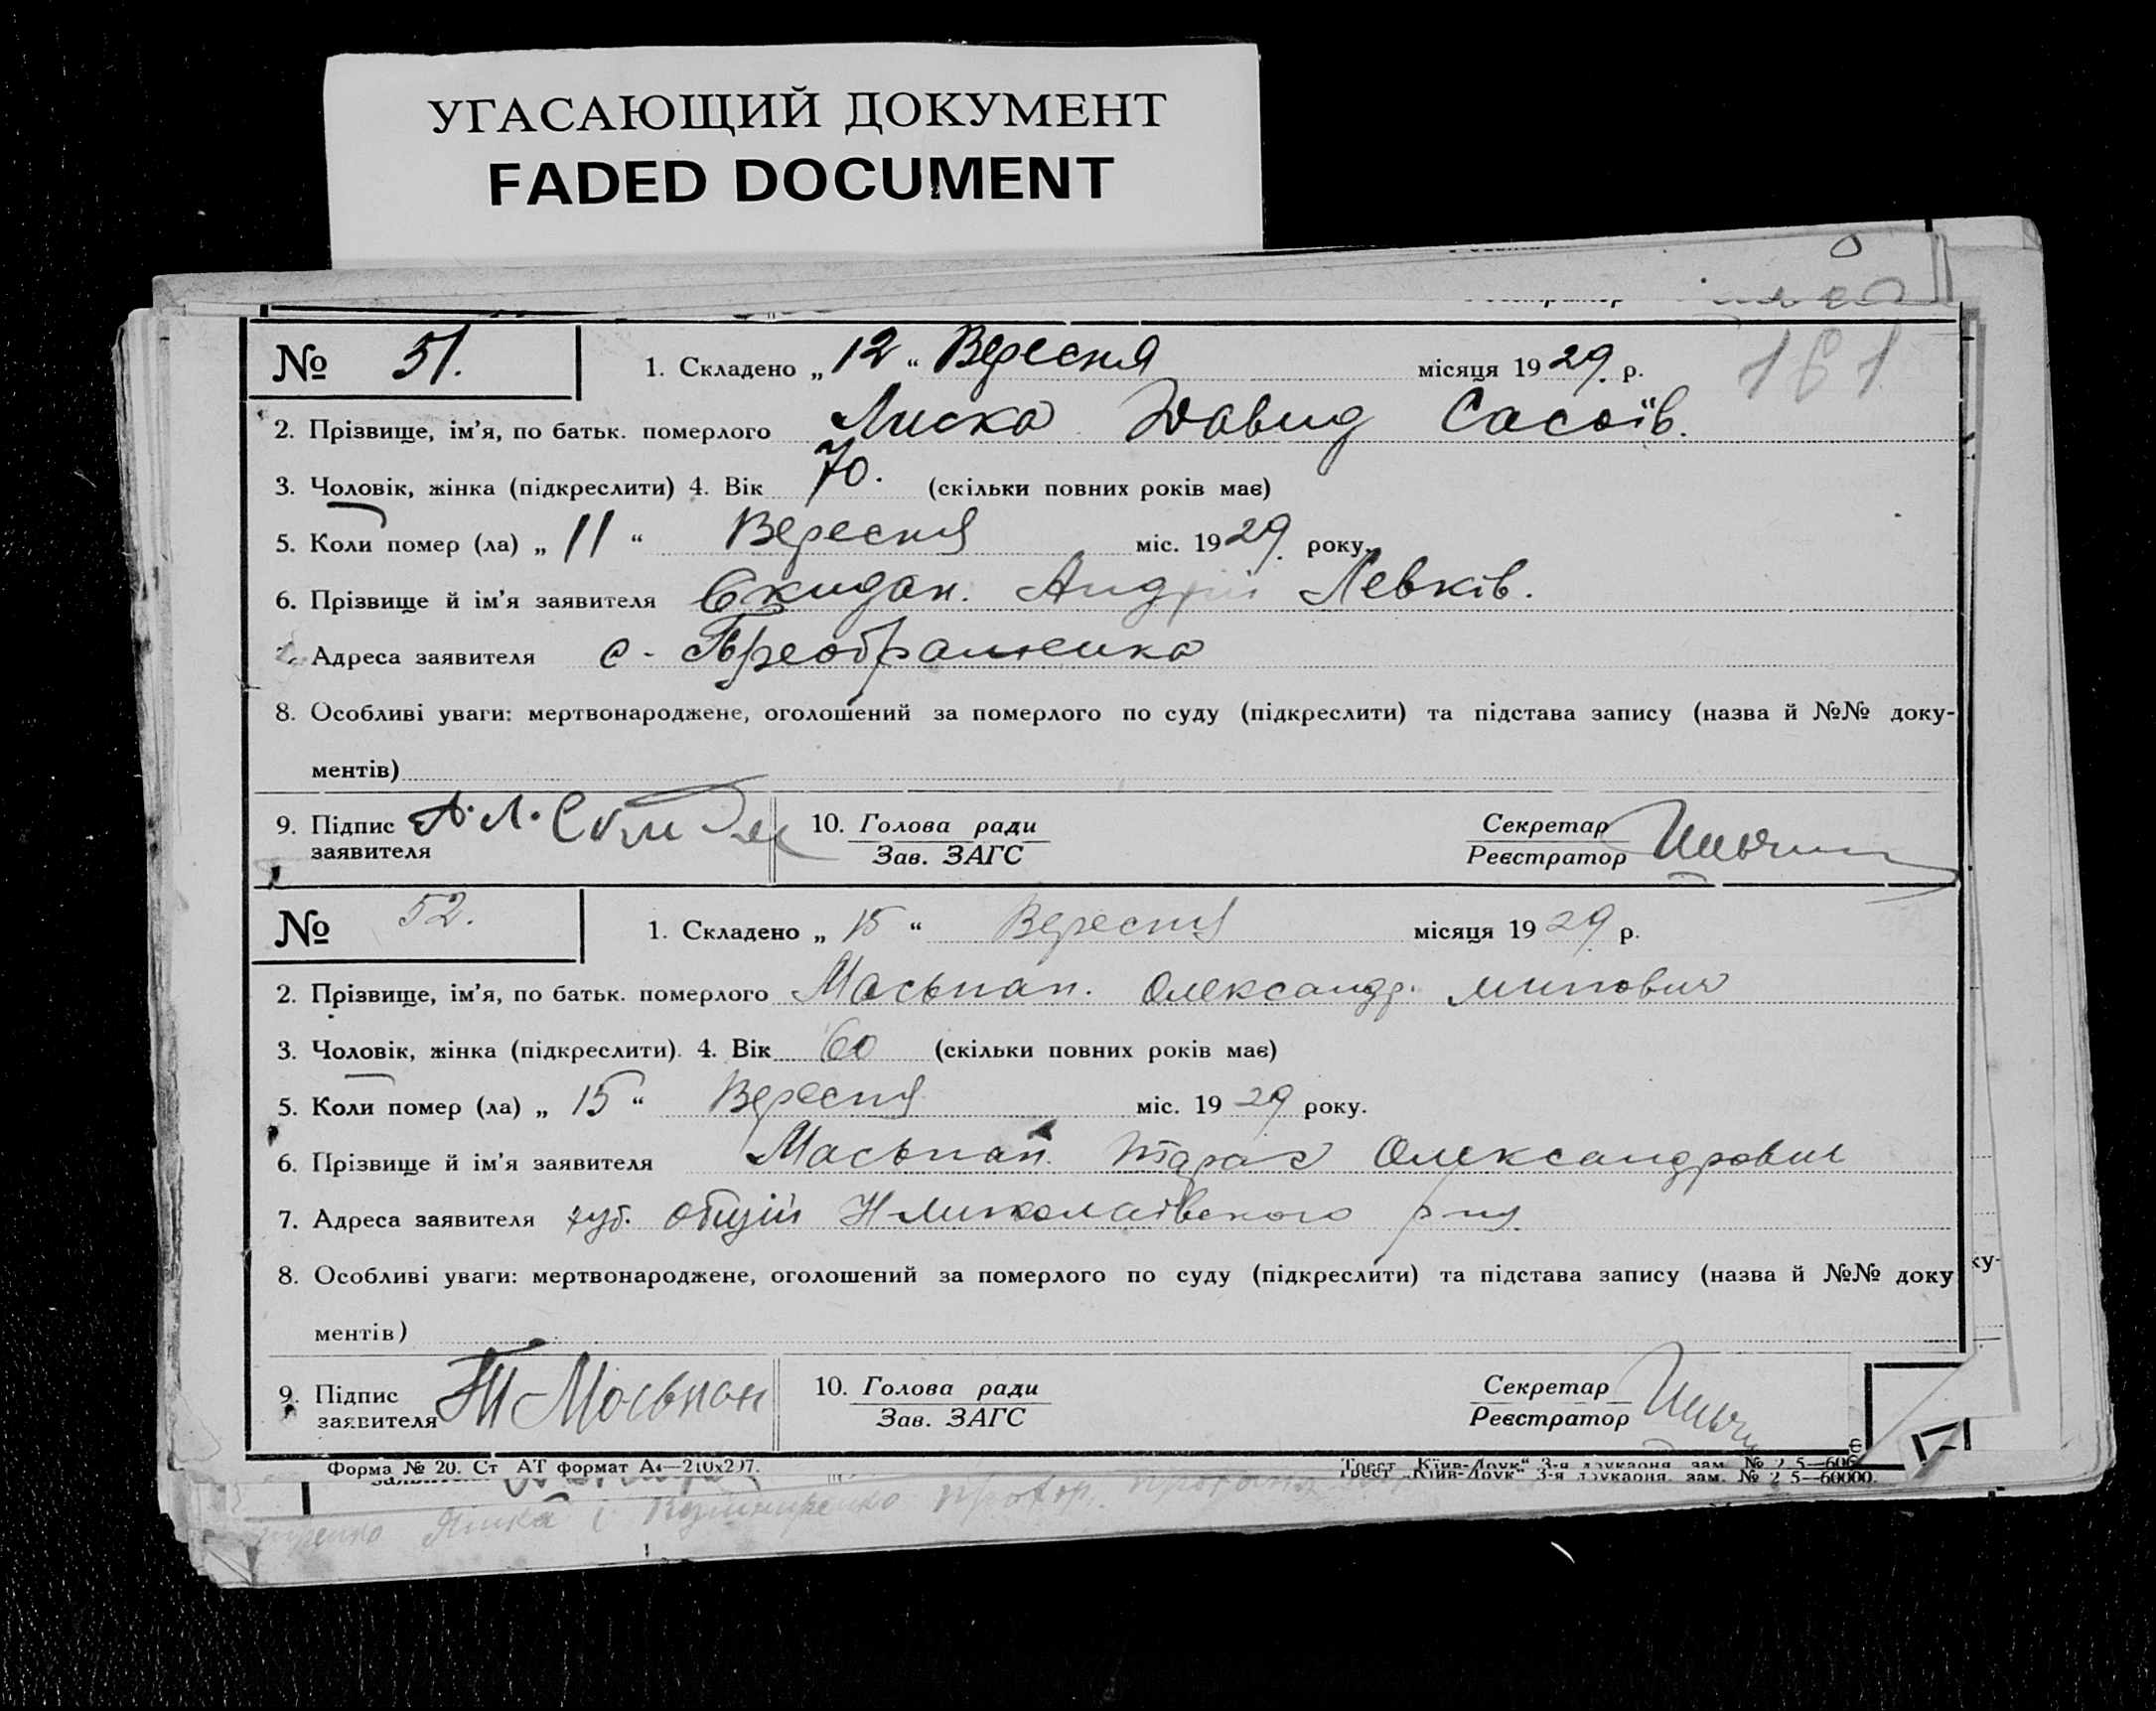 УГАСАЮЩИЙ ДОКУМЕНТ
FADED DOCUMENT
161
№ 51. 1. Складено „ 12 “ Вересня місяця 1929 р.
2. Прізвище, ім’я, по батьк. померлого Лиска Давид Сасоїв.
3. Чоловік, жінка (підкреслити) 4. Вік 70. (скільки повних років має)
5. Коли помер (ла) „ 11 “ Вересня міс. 1929 року.
6. Прізвище й ім’я заявителя Скидан. Андрій Левків.
Адреса заявителя с. Преображенка
8. Особливі уваги: мертвонароджене, оголошений за померлого по суду (підкреслити) та підстава запису (назва й №№ доку-
ментів)
9. Підпис заявителя А. Л. Скидан 10. Голова ради Зав. ЗАГС Секретар Реєстратор
№ 52. 1. Складено „ 15 “ Вересня місяця 1929 р.
2. Прізвище, ім’я, по батьк. померлого Масьпан. Олександр.
3. Чоловік, жінка (підкреслити). 4. Вік 60 (скільки повних років має)
5. Коли помер (ла) „ 15 “ Вересня міс. 1929 року.
6. Прізвище й ім’я заявителя Масьпан. Тарас Олександрович
7. Адреса заявителя хут. общий Н Миколаївского р-ну.
8. Особливі уваги: мертвонароджене, оголошений за померлого по суду (підкреслити) та підстава запису (назва й №№ доку
ментів)
9. Підпис заявителя Т Масьпан 10. Голова ради Зав. ЗАГС Секретар Реєстратор
Форма № 20. Ст АТ формат А4—210х297. Трест „Київ-Друк“ 3-я друкарня, зам. № 2 5—60000.